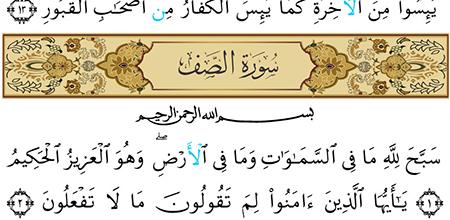 يَئِسُوا۟ مِنَ ٱلْـَٔاخِرَةِ كَمَا يَئِسَ ٱلْكُفَّارُ مِنْ أَصْحَٰبِ ٱلْقُبُورِ ﴿١٣﴾
سُورَةُ الصَّفِّ
بسم الله الرحمن الرحيم
سَبَّحَ لِلَّهِ مَا فِى ٱلسَّمَٰوَٰتِ وَمَا فِى ٱلْأَرْضِ ۖ وَهُوَ ٱلْعَزِيزُ ٱلْحَكِيمُ
﴿١﴾ يَٰٓأَيُّهَا ٱلَّذِينَ ءَامَنُوا۟ لِمَ تَقُولُونَ مَا لَا تَفْعَلُونَ ﴿٢﴾